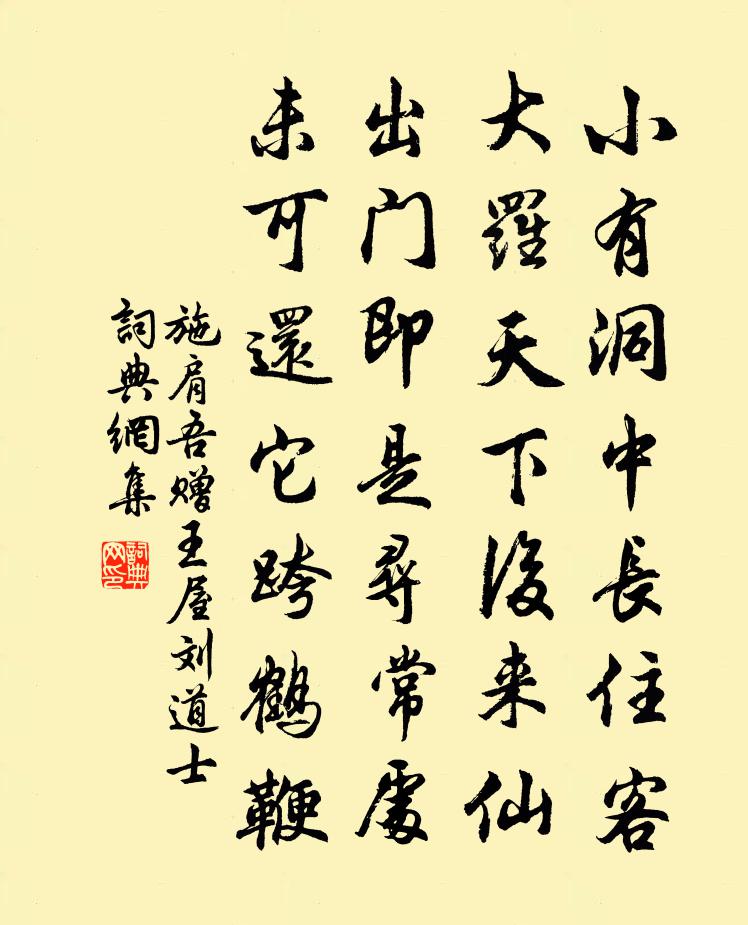 小有洞中長住客
大羅天下後来仙
出门即是尋常處
未可還它跨鹤鞭
施肩吾赠王屋刘道士
詞典網集
詞典网印